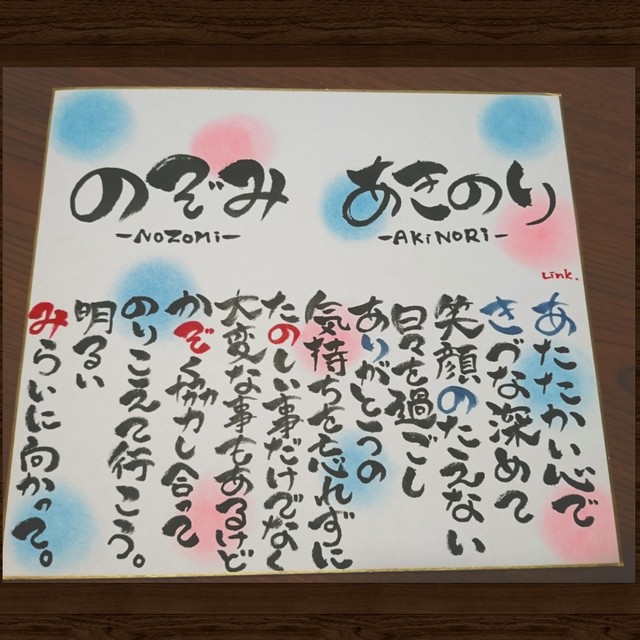 のぞみ
-NOZOMi-
あきのり
-AKiNORi-
Link.
あたたかい心で
きづな深めて
笑顔のたえない
日々を過ごし
ありがとうの
気持ちを忘れずに
たのしい事だけでなく
大変な事もあるけど
かぞく協力し合って
のりこえて行こう。
明るい
みらいに向かって。